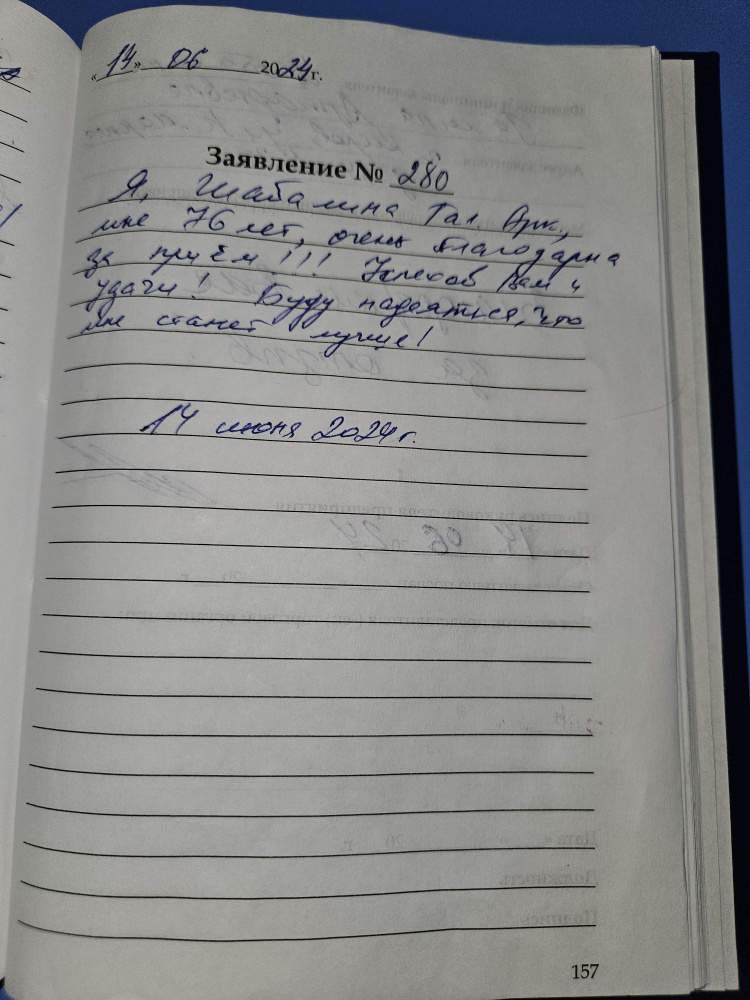 «14» 06 2024 г.
Заявление № 280
Я, Шабалина Гал. Арк.,
мне 76 лет, очень благодарна
за приём!!! Успехов Вам и
удачи! Буду надеяться, что
мне станет лучше!
14 июня 2024 г.
157